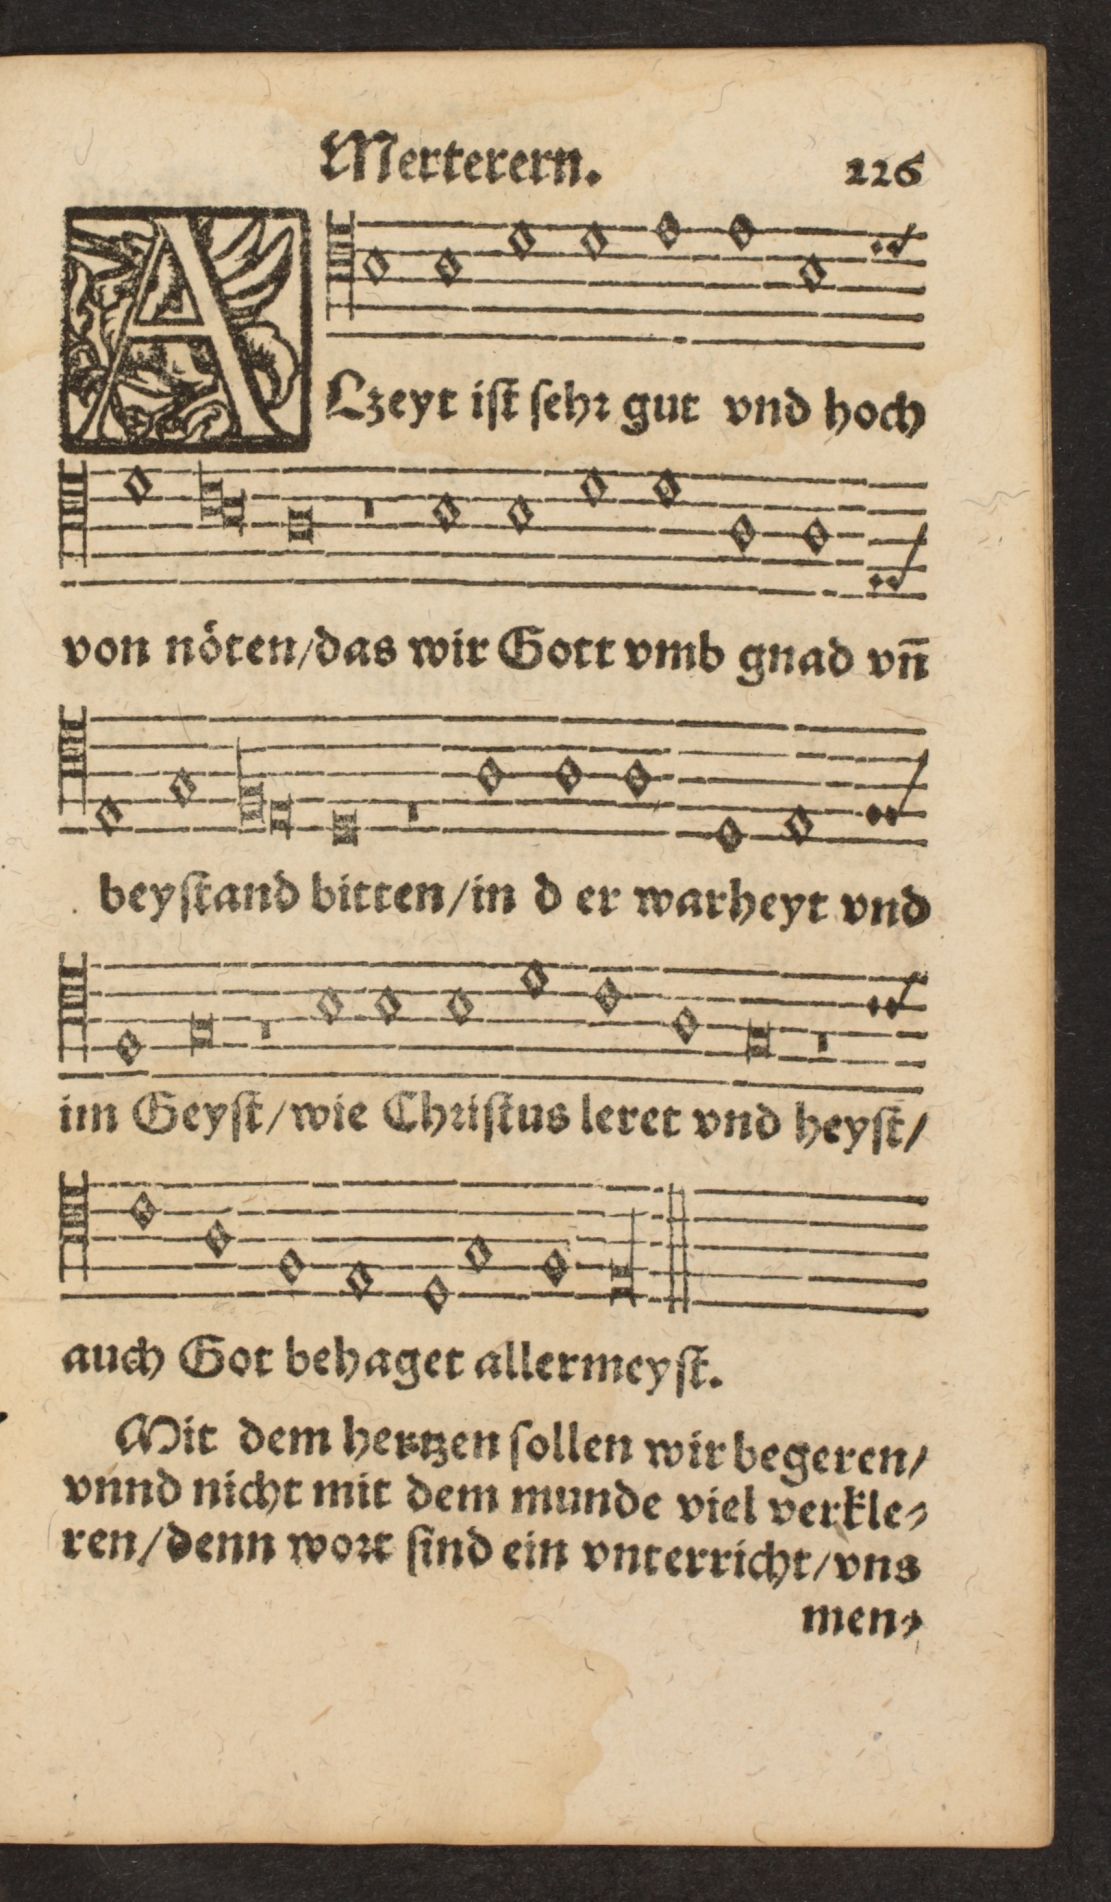 Merterern. 226
ALzeyt ist sehr gut vnd hoch
von nöten/das wir Gott vmb gnad vn̄
beystand bitten/in d er warheyt vnd
im Geyst/wie Christus leret vnd heyst/
auch Got behaget allermeyst.
Mit dem hertzen sollen wir begeren/
vnnd nicht mit dem munde viel verkle⸗
ren/denn wort sind ein vnterricht/vns
men⸗